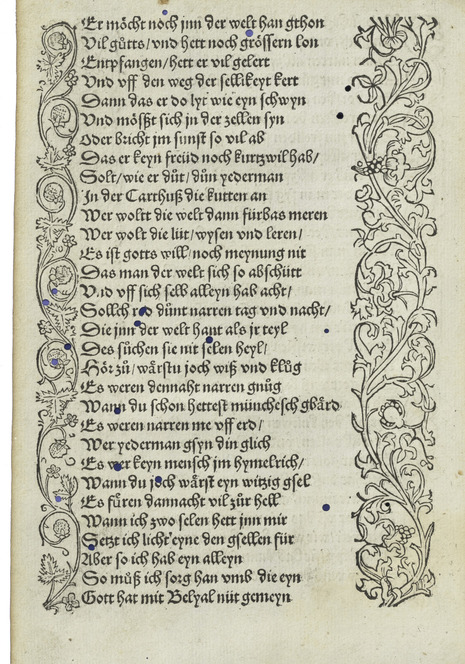 Er möcht noch jnn der welt han gthon
Vil gütts/ vnd hett noch grössern lon
Entpfangen/ hett er vil gelert
Vnd vff den weg der sellikeyt kert
Dann das er do lyt wie eyn schwyn
Vnd möstzt sich in der zellen syn
Oder bricht jm sunst so vil ab
Das er keyn freüd noch kurtzwil hab/
Solt/ wie er düt/ dün yederman
Jn der Carthuß die kutten an
Wer woltt die welt dann fürbas meren
Wer wolt die lüt/ wysen vnd leren/
Es ist gotts will/ noch meynung nit
Das man der welt sich so abschütt
Vnd vff sich selb alleyn hab acht/
Sollch red dünt narren tag vnd nacht/
Die jnn der welt hant als jr teyl
Des süchen sie nit selen heyl/
Hör zü/ wärstu joch wiß vnd klüg
Es weren dennaht narren gnüg
Wann du schon hettest münchesch gbärd
Es weren narren me vff erd/
Wer yederman gsyn din glich
Es wer keyn mensch jm hymelrich/
Wann du joch wärst eyn witzig gsel
Es füren dannacht vil zür hell
Wann ich zwo selen hett jnn mir
Setzt ich licht eyne den gsellen für
Aber so ich hab eyn alleyn
So müß ich sorg han vmb die eyn
Gott hat mit Belyal nüt gemeyn